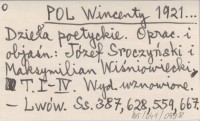 POL Wincenty 1921...
Dzieła poetyckie. Oprac. i
objaśn: Józef Sroczyński i
Maksymilian Wiśniowiecki.
T. I-IV. Wyd. wznowione.
– Lwów. Ss. 387, 628, 559, 667.